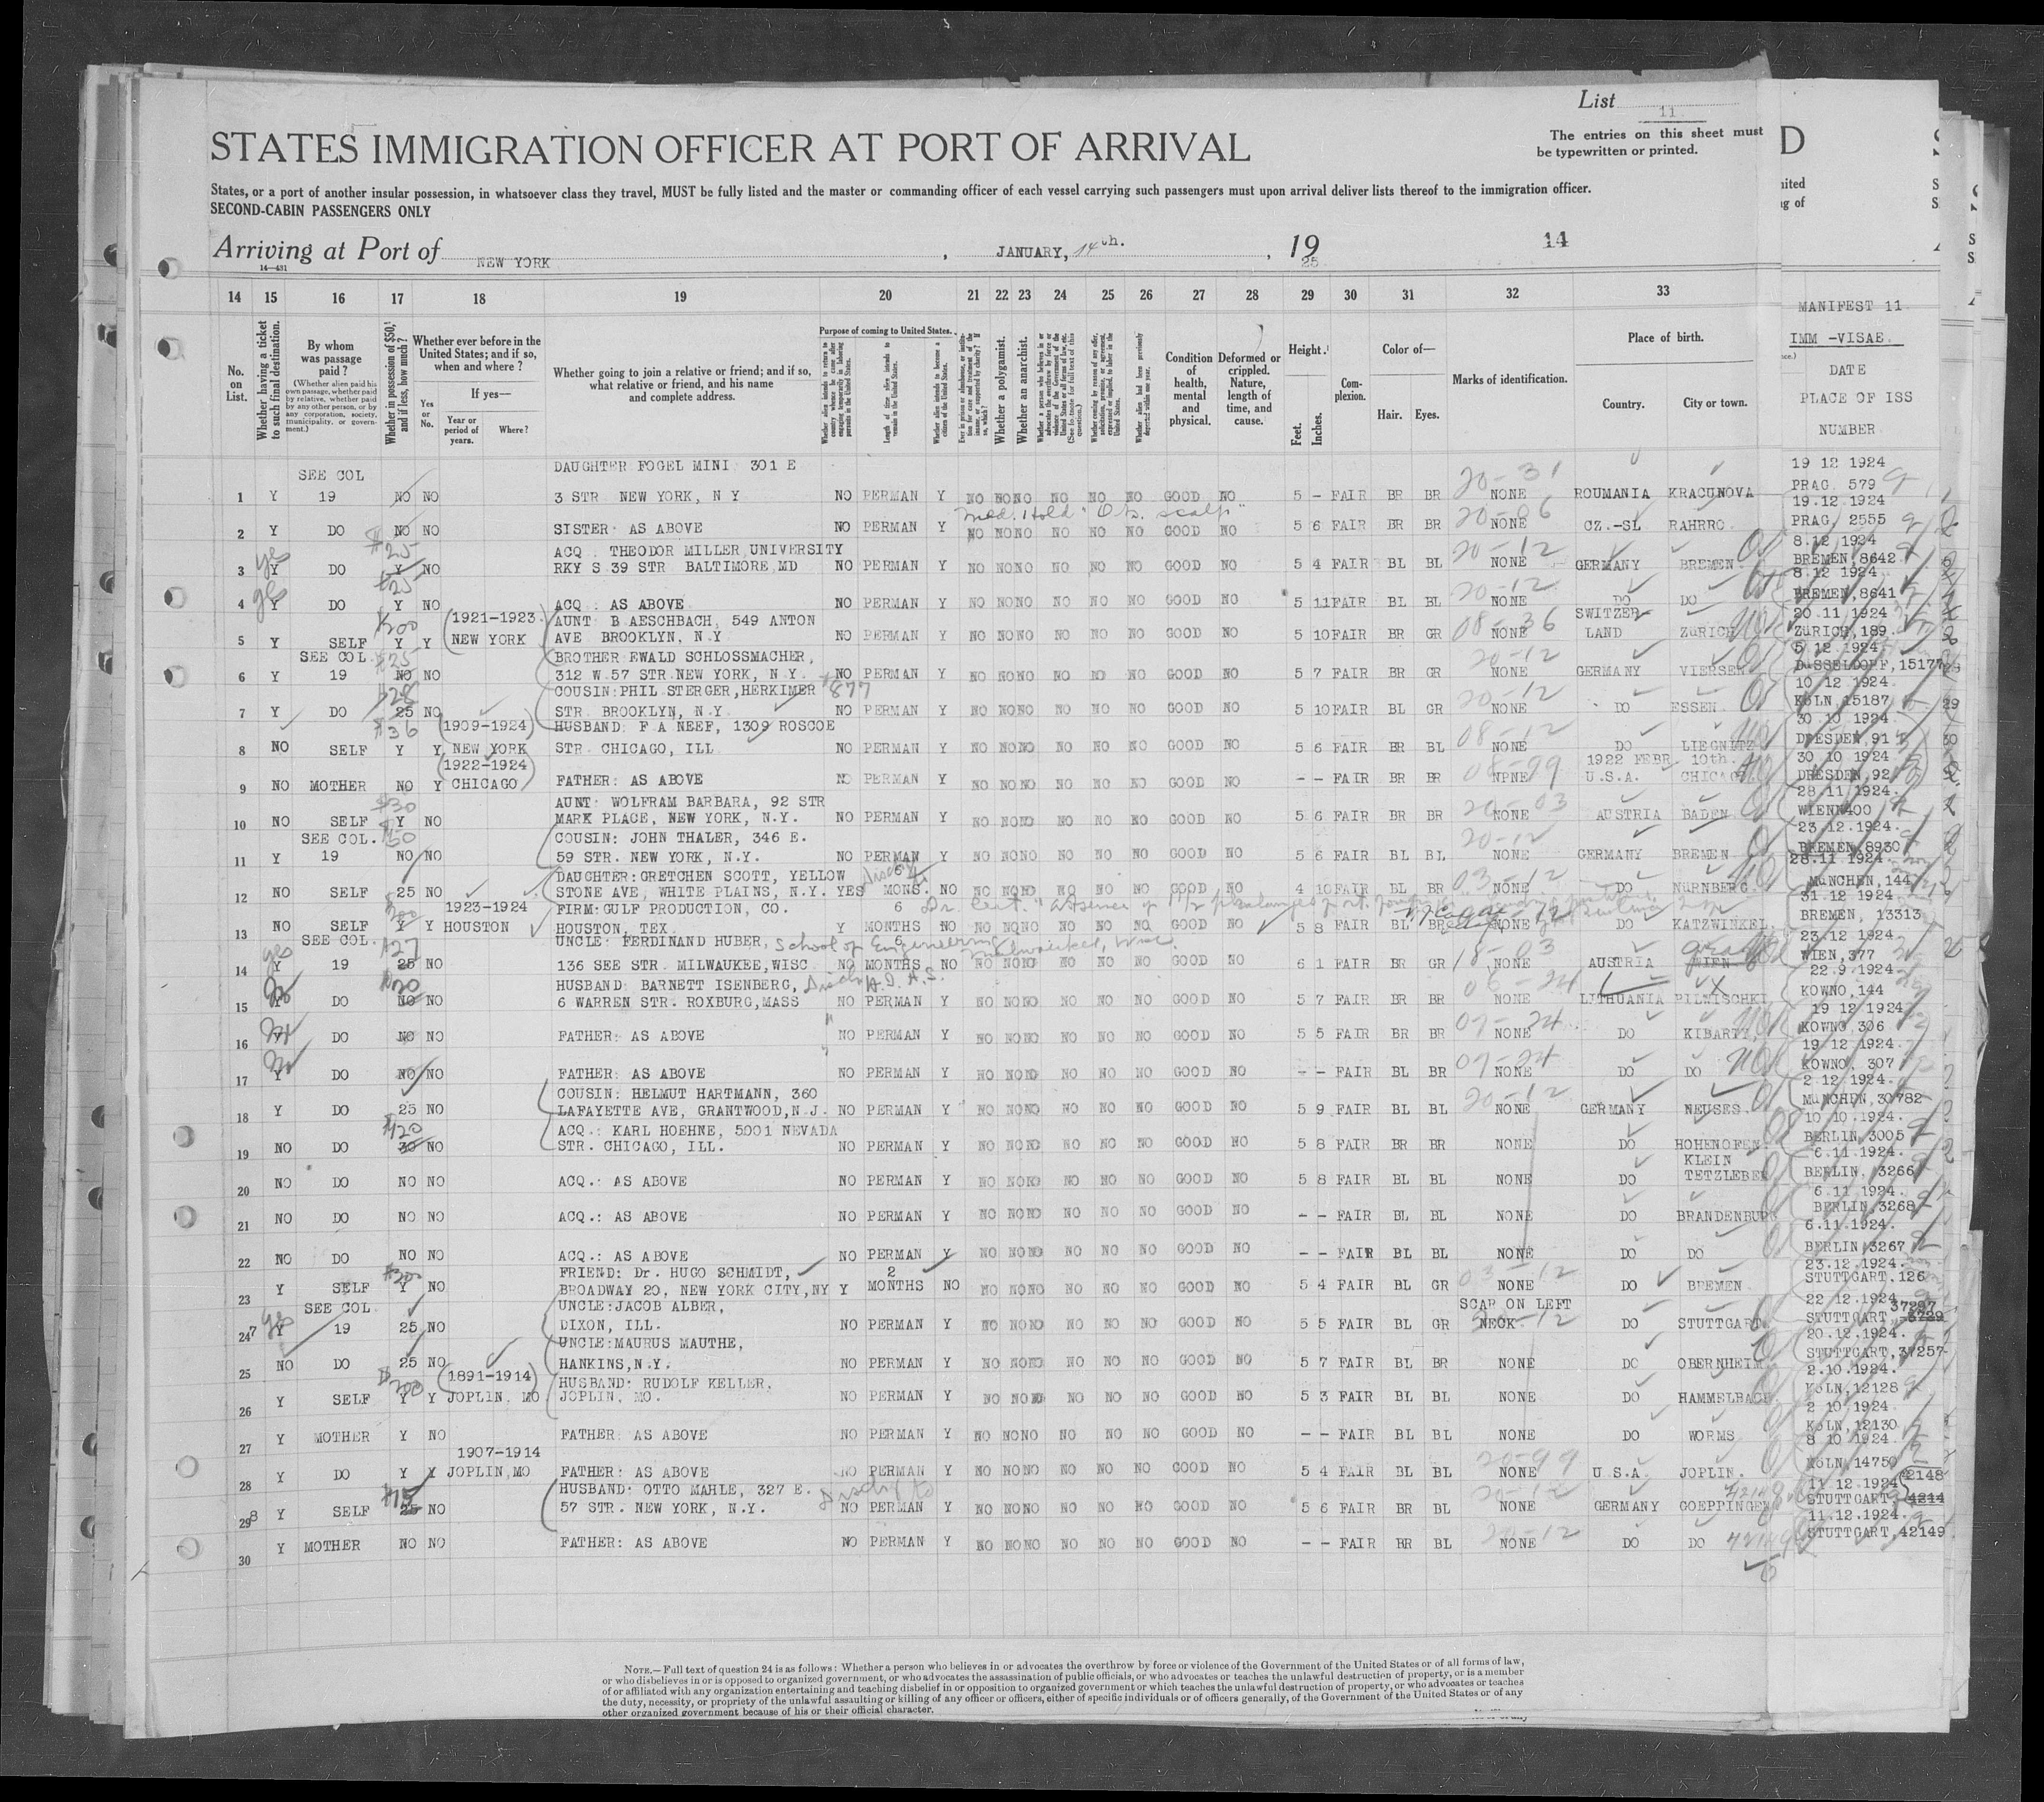 List 11
The entries on this sheet must
be typewritten or printed.
STATES IMMIGRATION OFFICER AT PORT OF ARRIVAL
States, or a port of another insular possession, in whatsoever class they travel, MUST be fully listed and the master or commanding officer of each vessel carrying such passengers must upon arrival deliver lists thereof to the immigration officer.
SECOND-CABIN PASSENGERS ONLY
Arriving at Port of NEW YORK , JANUARY, 14th. , 19 25 14
14—431
14 15 16 17 18 19 20 21 22 23 24 25 26 27 28 29 30 31 32 33
MANIFEST 11.
IMM -VISAE.
DATE
PLACE OF ISS
NUMBER
No. on List.
Whether having a ticket to such final destination.
By whom was passage paid?
(Whether alien paid his own passage, whether paid by relative, whether paid by any other person, or by any corporation, society, municipality, or government.)
Whether in possession of $50, and if less, how much?
Whether ever before in the United States; and if so, when and where?
Yes or No.
If yes—
Year or period of years.
Where?
Whether going to join a relative or friend; and if so, what relative or friend, and his name and complete address.
Purpose of coming to United States.
Whether alien intends to return to country whence he came after engaging temporarily in laboring pursuits in the United States.
Length of time alien intends to remain in the United States.
Whether alien intends to become a citizen of the United States.
Whether a polygamist.
Whether an anarchist.
Condition of health, mental and physical.
Deformed or crippled. Nature, length of time, and cause.
Height.
Feet. Inches.
Complexion.
Color of—
Hair. Eyes.
Marks of identification.
Place of birth.
Country. City or town.
SEE COL DAUGHTER FOGEL MINI 301 E 19 12 1924
1 Y 19 NO NO 3 STR NEW YORK, N Y NO PERMAN Y NO NO NO NO NO NO GOOD NO 5 - FAIR BR BR NONE ROUMANIA KRACUNOVA PRAG 579
Med. Hold 20-31 19.12 1924
2 Y DO NO NO SISTER: AS ABOVE NO PERMAN Y NO NO NO NO NO NO GOOD NO 5 6 FAIR BR BR NONE CZ.-SL RAHRRO. PRAG, 2555
$25 ACQ. THEODOR MILLER UNIVERSITY 20-12 8.12 1924
3 Y DO Y NO RKY S 39 STR BALTIMORE MD NO PERMAN Y NO NO NO NO NO NO GOOD NO 5 4 FAIR BL BL NONE GERMANY BREMEN BREMEN, 8642
$25 20-12 8.12 1924
4 Y DO Y NO ACQ.: AS ABOVE NO PERMAN Y NO NO NO NO NO NO GOOD NO 5 11 FAIR BL BL NONE DO DO BREMEN, 8641
(1921-1923 AUNT B AESCHBACH, 549 ANTON 08-36 SWITZER- 20.11 1924
5 Y SELF Y Y NEW YORK AVE BROOKLYN, N.Y NO PERMAN Y NO NO NO NO NO NO GOOD NO 5 10 FAIR BR GR NONE LAND ZURICH ZURICH, 189.
SEE COL. $25 BROTHER EWALD SCHLOSSMACHER, 20-12 5 12 1924
6 Y 19 NO NO 312 W 57 STR.NEW YORK, N.Y. NO PERMAN Y NO NO NO NO NO NO GOOD NO 5 7 FAIR BR GR NONE GERMANY VIERSEN DüSSELDORF, 15177
COUSIN: PHIL STERGER, HERKIMER 877 20-12 10 12 1924
7 Y DO 25 NO STR. BROOKLYN, N.Y NO PERMAN Y NO NO NO NO NO NO GOOD NO 5 10 FAIR BL GR NONE DO ESSEN KöLN, 15187
$36 (1909-1924) HUSBAND: F A NEEF, 1309 ROSCOE 08-12 30 10 1924
8 NO SELF Y Y NEW YORK STR. CHICAGO, ILL NO PERMAN Y NO NO NO NO NO NO GOOD NO 5 6 FAIR BR BL NONE DO LIEGNITZ DRESDEN, 91
(1922-1924) 08-99 1922 FEBR 10th. 30 10 1924
9 NO MOTHER NO Y CHICAGO FATHER: AS ABOVE NO PERMAN Y NO NO NO NO NO NO GOOD NO - - FAIR BR BR NPNE U.S.A. CHICAGO DRESDEN, 92
$30 AUNT: WOLFRAM BARBARA, 92 STR 20-03 28.11 1924.
10 NO SELF Y NO MARK PLACE, NEW YORK, N.Y. NO PERMAN Y NO NO NO NO NO NO GOOD NO 5 6 FAIR BR BR NONE AUSTRIA BADEN WIEN 400
SEE COL. $50 COUSIN: JOHN THALER, 346 E. 20-12 23.12.1924.
11 Y 19 NO NO 59 STR. NEW YORK, N.Y. NO PERMAN Y NO NO NO NO NO NO GOOD NO 5 6 FAIR BL BL NONE GERMANY BREMEN BREMEN, 8930
DAUGHTER: GRETCHEN SCOTT, YELLOW 6 03-12 28.11 1924.
12 NO SELF 25 NO STONE AVE, WHITE PLAINS, N.Y. YES MONS. NO NO NO NO NO NO NO GOOD NO 4 10 FAIR BL BR NONE DO NURNBERG MüNCHEN, 144
1923-1924 FIRM: GULF PRODUCTION, CO. 6 31 12 1924
13 NO SELF Y Y HOUSTON HOUSTON, TEX. Y MONTHS NO NO NO NO NO NO NO GOOD NO 5 8 FAIR BL BR NONE DO KATZWINKEL. BREMEN, 13313
SEE COL. $27 UNCLE: FERDINAND HUBER, School of Engineering Milwaukee, Wisc. 6 18-03 23.12 1924
14 Y 19 25 NO 136 SEE STR. MILWAUKEE, WISC NO MONTHS NO NO NO NO NO NO NO GOOD NO 6 1 FAIR BR GR NONE AUSTRIA WIEN Graz WIEN, 377
$20 HUSBAND: BARNETT ISENBERG, 22.9.1924
15 Y DO NO NO 6 WARREN STR. ROXBURG, MASS NO PERMAN Y NO NO NO NO NO NO GOOD NO 5 7 FAIR BR BR NONE LITHUANIA PILWISCHKI KOWNO, 144
07-24 19 12 1924
16 DO NO NO FATHER: AS ABOVE NO PERMAN Y NO NO NO NO NO NO GOOD NO 5 5 FAIR BR BR NONE DO KIBARTY, KOWNO, 306
07-24 19 12 1924.
17 Y DO NO NO FATHER: AS ABOVE NO PERMAN Y NO NO NO NO NO NO GOOD NO - - FAIR BL BR NONE DO DO KOWNO, 307
COUSIN: HELMUT HARTMANN, 360 20-12 2 12 1924.
18 Y DO 25 NO LAFAYETTE AVE, GRANTWOOD, N.J. NO PERMAN Y NO NO NO NO NO NO GOOD NO 5 9 FAIR BL BL NONE GERMANY NEUSES. MüNCHEN, 30782
$120 ACQ.: KARL HOEHNE, 5001 NEVADA 10 10.1924.
19 NO DO 30 NO STR. CHICAGO, ILL. NO PERMAN Y NO NO NO NO NO NO GOOD NO 5 8 FAIR BR BR NONE DO HOHENOFEN. BERLIN, 3005
KLEIN 6.11.1924.
20 NO DO NO NO ACQ.: AS ABOVE NO PERMAN Y NO NO NO NO NO NO GOOD NO 5 8 FAIR BL BL NONE DO TETZLEBEN BERLIN, 3266
6 11 1924.
21 NO DO NO NO ACQ.: AS ABOVE NO PERMAN Y NO NO NO NO NO NO GOOD NO - - FAIR BL BL NONE DO BRANDENBURG BERLIN, 3268
6.11.1924.
22 NO DO NO NO ACQ.: AS ABOVE NO PERMAN Y NO NO NO NO NO NO GOOD NO - - FAIR BL BL NONE DO DO BERLIN, 3267
FRIEND: Dr. HUGO SCHMIDT, 2 03-12 23.12.1924.
23 Y SELF Y NO BROADWAY 20, NEW YORK CITY, NY Y MONTHS NO NO NO NO NO NO NO GOOD NO 5 4 FAIR BL GR NONE DO BREMEN STUTTGART, 126
SEE COL. UNCLE: JACOB ALBER, SCAR ON LEFT 22 12.1924. 37297
24 Y 19 25 NO DIXON, ILL. NO PERMAN Y NO NO NO NO NO NO GOOD NO 5 5 FAIR BL GR NECK DO STUTTGART STUTTGART,
UNCLE: MAURUS MAUTHE, 20.12.1924.
25 NO DO 25 NO HANKINS, N.Y. NO PERMAN Y NO NO NO NO NO NO GOOD NO 5 7 FAIR BL BR NONE DO OBERNHEIM STUTTGART, 37257
$200 (1891-1914) HUSBAND: RUDOLF KELLER, 2.10.1924.
26 Y SELF Y Y JOPLIN, MO JOPLIN, MO. NO PERMAN Y NO NO NO NO NO NO GOOD NO 5 3 FAIR BL BL NONE DO HAMMELBACH KöLN, 12128
2 10 1924
27 Y MOTHER Y NO FATHER: AS ABOVE NO PERMAN Y NO NO NO NO NO NO GOOD NO - - FAIR BL BL NONE DO WORMS KöLN, 12130
1907-1914 20-99 8 10 1924.
28 Y DO Y Y JOPLIN, MO FATHER: AS ABOVE NO PERMAN Y NO NO NO NO NO NO GOOD NO 5 4 FAIR BL BL NONE U.S.A. JOPLIN. KöLN, 14750
HUSBAND: OTTO MAHLE, 327 E. 20-12 11 12 1924 42148
29 Y SELF 25 NO 57 STR. NEW YORK, N.Y. NO PERMAN Y NO NO NO NO NO NO GOOD NO 5 6 FAIR BR BL NONE GERMANY GOEPPINGEN STUTTGART, 4214
20-12 11.12.1924.
30 Y MOTHER NO NO FATHER: AS ABOVE NO PERMAN Y NO NO NO NO NO NO GOOD NO - - FAIR BR BL NONE DO DO STUTTGART, 42149
NOTE.—Full text of question 24 is as follows: Whether a person who believes in or advocates the overthrow by force or violence of the Government of the United States or of all forms of law,
or who disbelieves in or is opposed to organized government, or who advocates the assassination of public officials, or who advocates or teaches the unlawful destruction of property, or is a member
of or affiliated with any organization entertaining and teaching disbelief in or opposition to organized government or which teaches the unlawful destruction of property, or who advocates or teaches
the duty, necessity, or propriety of the unlawful assaulting or killing of any officer or officers, either of specific individuals or of officers generally, of the Government of the United States or of any
other organized government because of his or their official character.